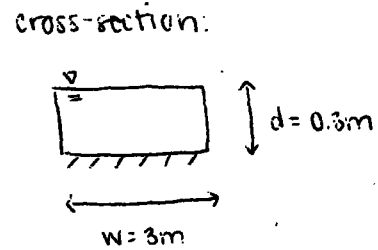 cross-section:
d= 0.3m
w= 3m